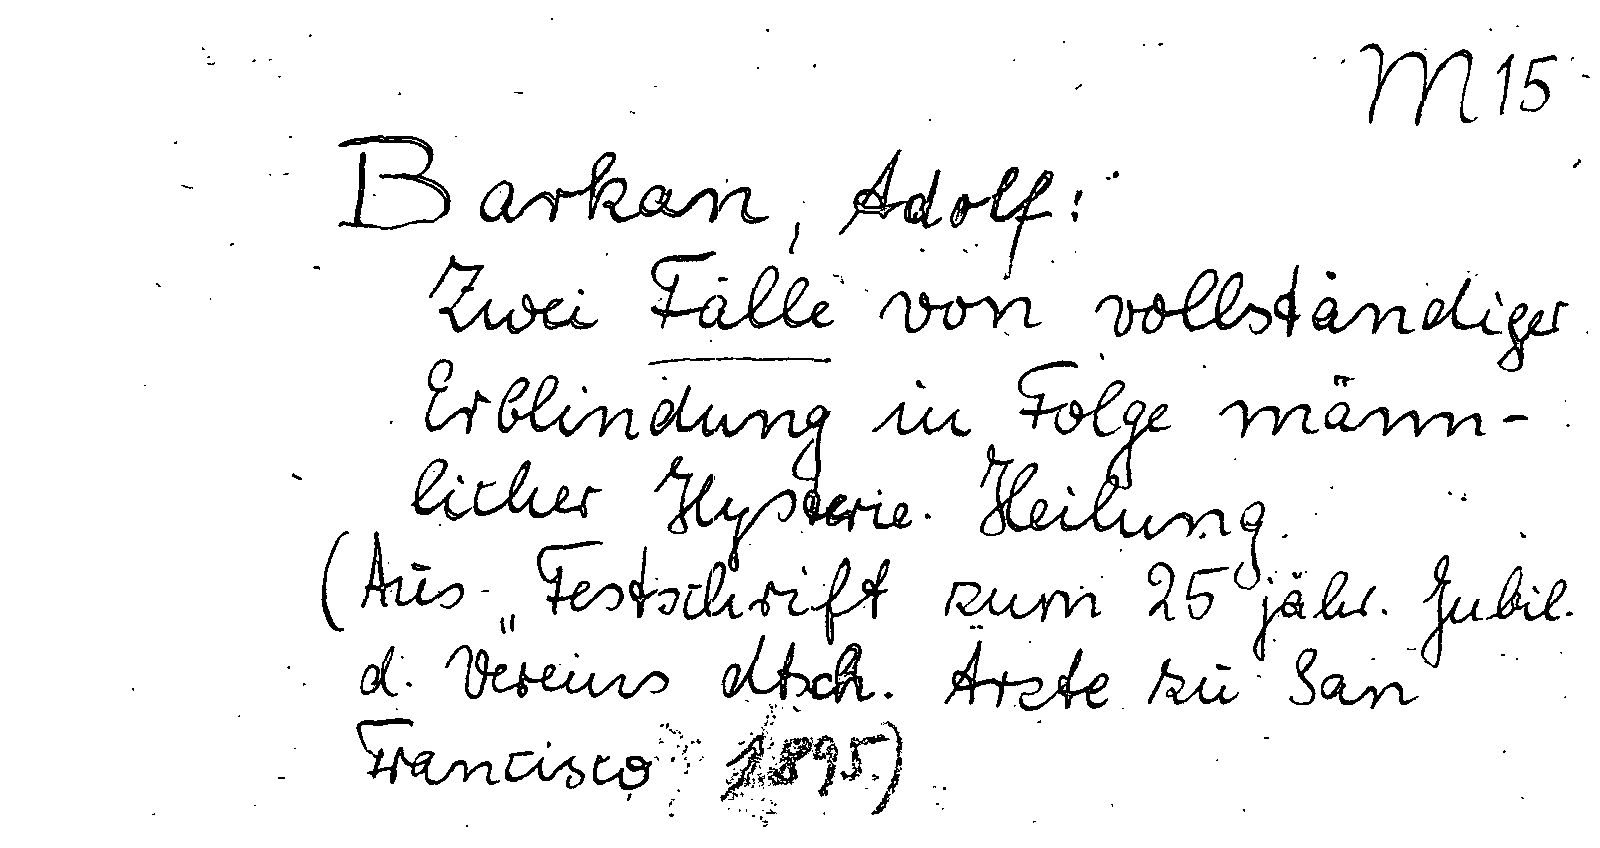 M 15
Barkan, Adolf:
Zwei Fälle von vollständiger
Erblindung in Folge männ-
licher Hysterie. Heilung.
(Aus „Festschrift zum 25 jähr. Jubil.
d. Vereins dtsch. Ärzte zu San
Francisco 1895.)